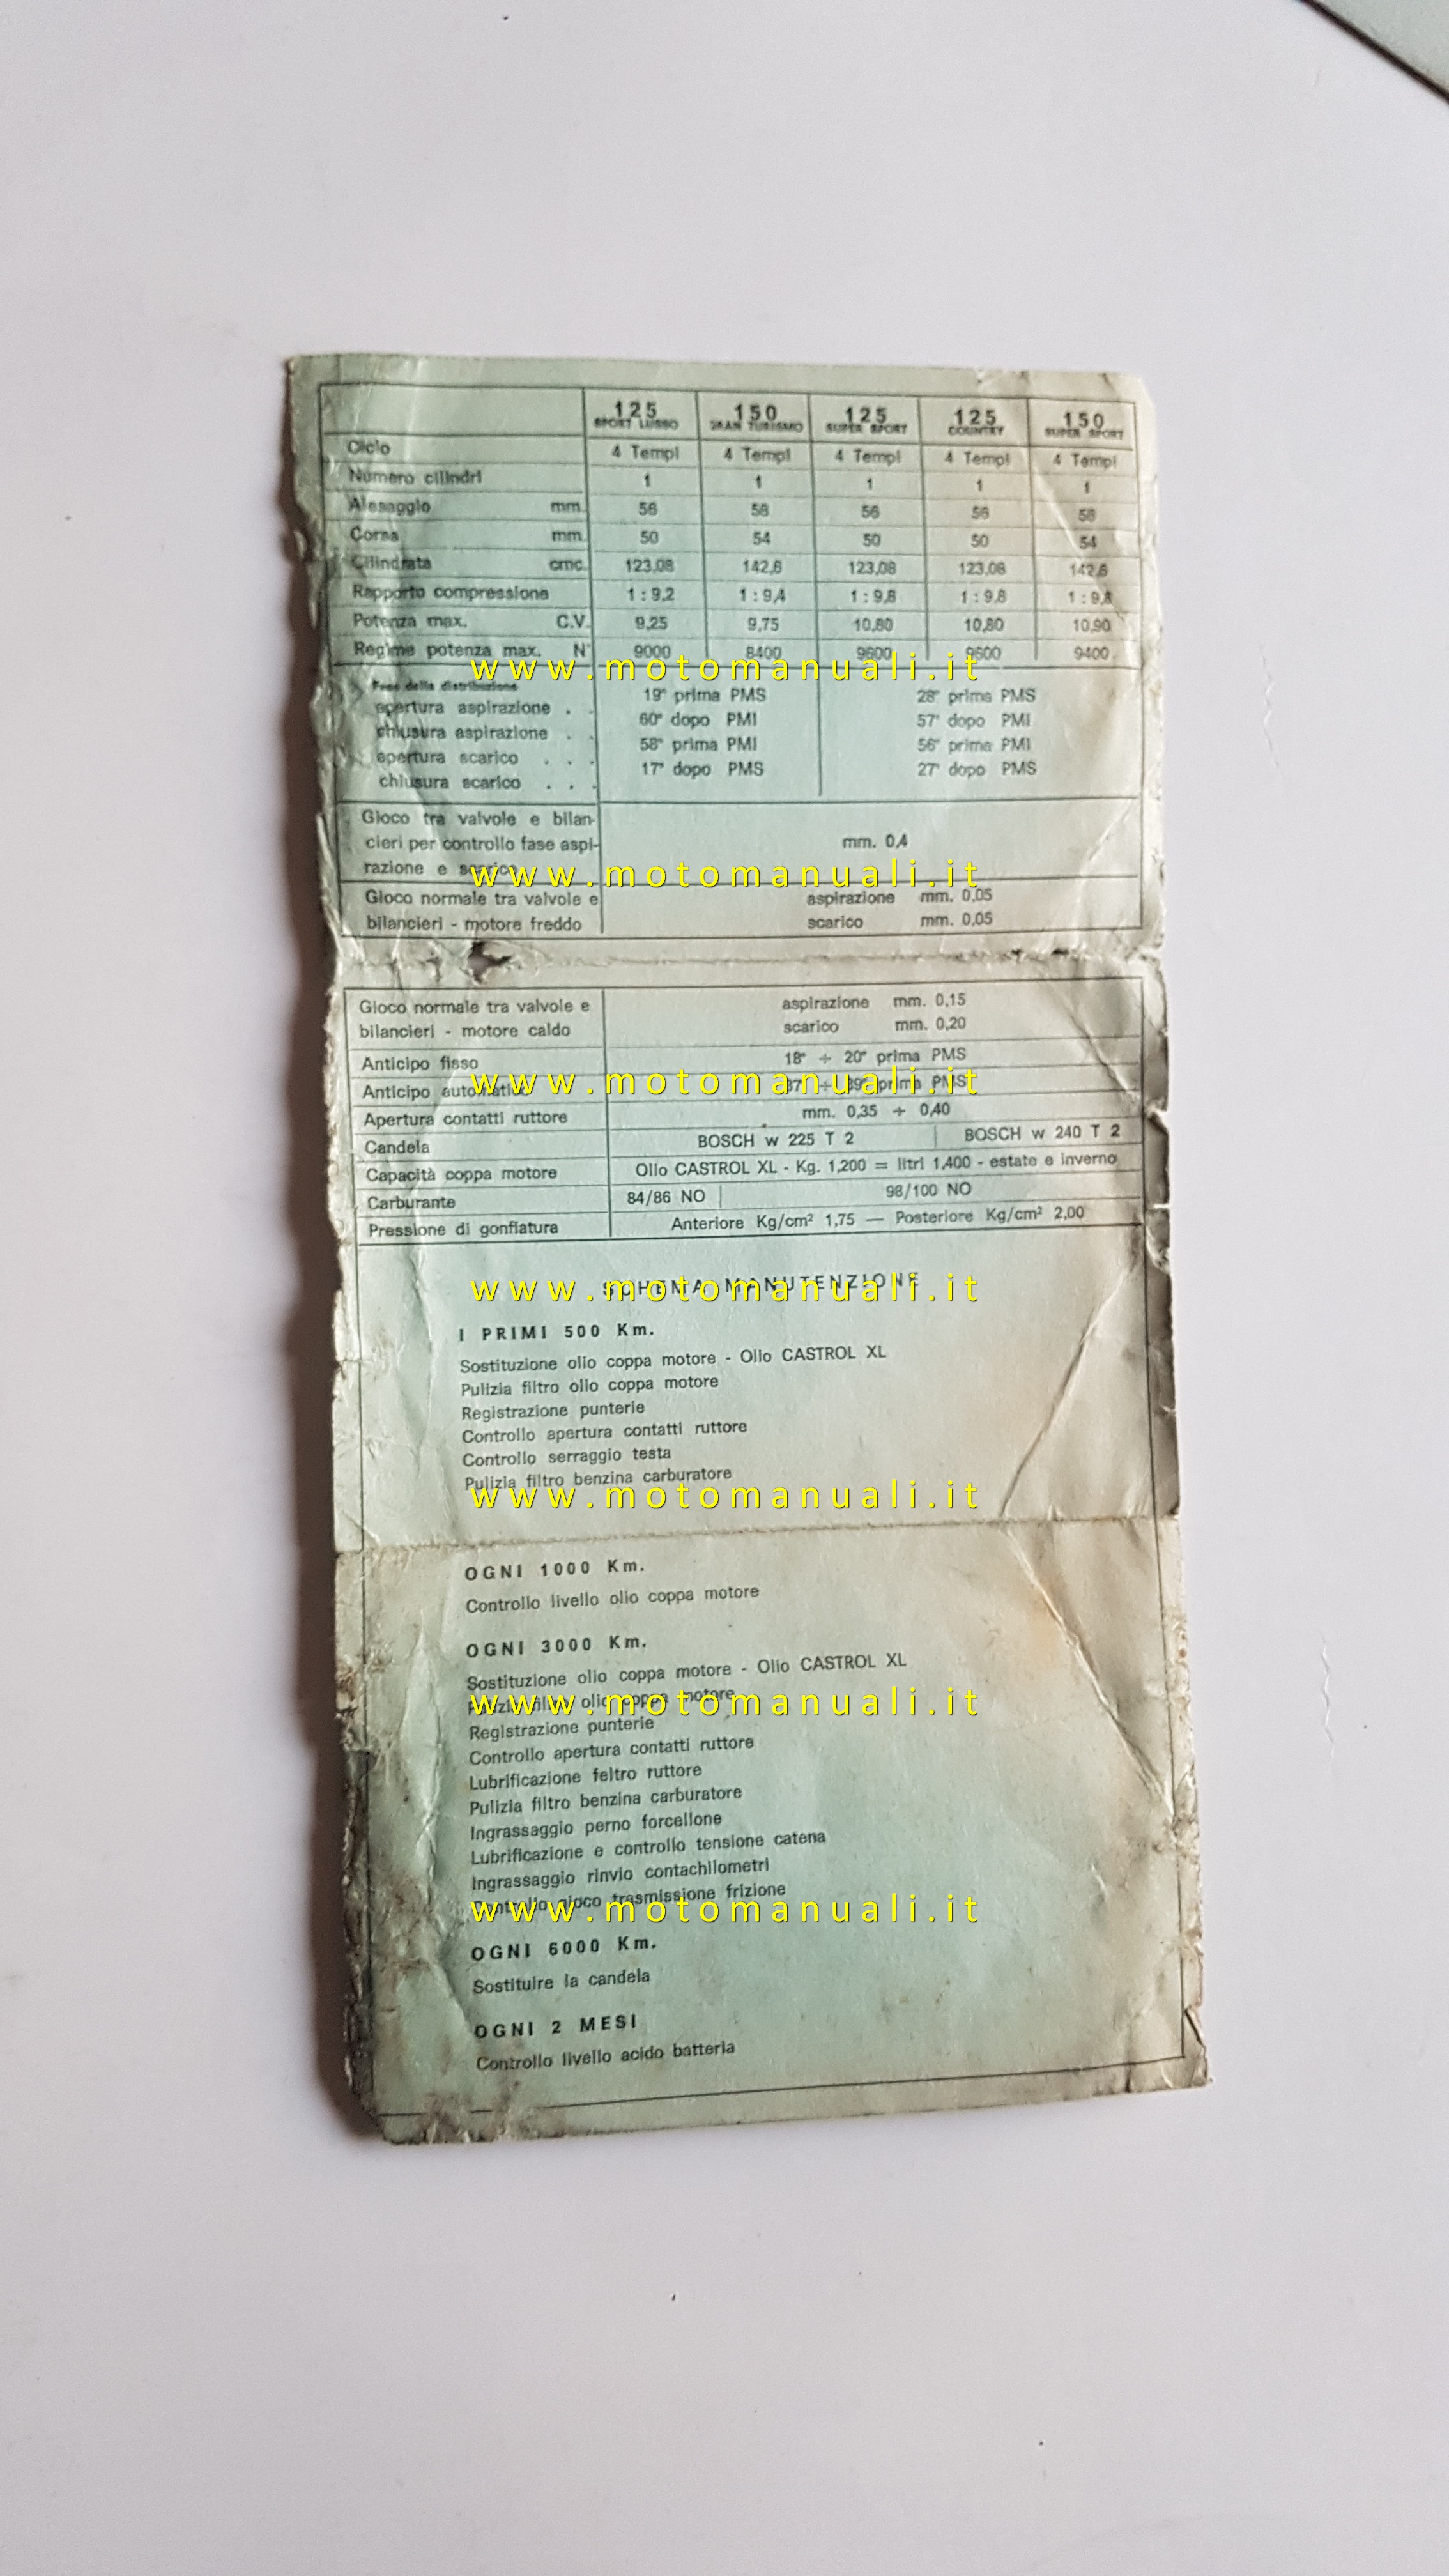 125 150 125 125 150
SPORT LUSSO GRAN TURISMO SUPER SPORT COUNTRY SUPER SPORT
Ciclo 4 Tempi 4 Tempi 4 Tempi 4 Tempi 4 Tempi
Numero cilindri 1 1 1 1 1
Alesaggio mm. 56 58 56 56 58
Corsa mm. 50 54 50 50 54
Cilindrata cmc. 123,08 142,6 123,08 123,08 142,6
Rapporto compressione 1 : 9,2 1 : 9,4 1 : 9,8 1 : 9,8 1 : 9,8
Potenza max. C.V. 9,25 9,75 10,80 10,80 10,90
Regime potenza max. N° 9000 8400 9600 9600 9400
www.motomanuali.it
Fase della distribuzione
apertura aspirazione . . 19° prima PMS 28° prima PMS
chiusura aspirazione . . 60° dopo PMI 57° dopo PMI
apertura scarico . . . 58° prima PMI 56° prima PMI
chiusura scarico . . . 17° dopo PMS 27° dopo PMS
Gioco tra valvole e bilan-
cieri per controllo fase aspi- mm. 0,4
razione e scarico
www.motomanuali.it
Gioco normale tra valvole e aspirazione mm. 0,05
bilancieri - motore freddo scarico mm. 0,05
Gioco normale tra valvole e aspirazione mm. 0,15
bilancieri - motore caldo scarico mm. 0,20
Anticipo fisso 18° ÷ 20° prima PMS
Anticipo automatico 37° ÷ 39° prima PMS
www.motomanuali.it
Apertura contatti ruttore mm. 0,35 ÷ 0,40
Candela BOSCH w 225 T 2 BOSCH w 240 T 2
Capacità coppa motore Olio CASTROL XL - Kg. 1,200 = litri 1,400 - estate e inverno
Carburante 84/86 NO 98/100 NO
Pressione di gonfiatura Anteriore Kg/cm² 1,75 — Posteriore Kg/cm² 2,00
SCHEMA MANUTENZIONE
www.motomanuali.it
I PRIMI 500 Km.
Sostituzione olio coppa motore - Olio CASTROL XL
Pulizia filtro olio coppa motore
Registrazione punterie
Controllo apertura contatti ruttore
Controllo serraggio testa
Pulizia filtro benzina carburatore
www.motomanuali.it
OGNI 1000 Km.
Controllo livello olio coppa motore
OGNI 3000 Km.
Sostituzione olio coppa motore - Olio CASTROL XL
Pulizia filtro olio coppa motore
www.motomanuali.it
Registrazione punterie
Controllo apertura contatti ruttore
Lubrificazione feltro ruttore
Pulizia filtro benzina carburatore
Ingrassaggio perno forcellone
Lubrificazione e controllo tensione catena
Ingrassaggio rinvio contachilometri
Controllo gioco trasmissione frizione
www.motomanuali.it
OGNI 6000 Km.
Sostituire la candela
OGNI 2 MESI
Controllo livello acido batteria